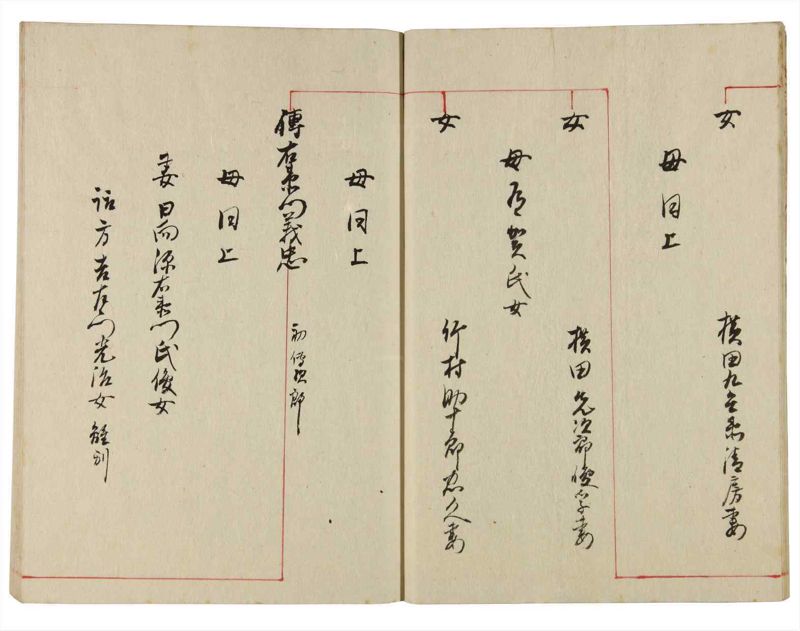 女
横田九兵衛清房妻
母同上
女
横田 次郎 妻
母 賀氏女
女
竹村助十郎 久妻
母同上
傳右衛門義忠
初傳次郎
母同上
妻日向源右衛門氏俊女
諸方吉左衛門光治女 離別